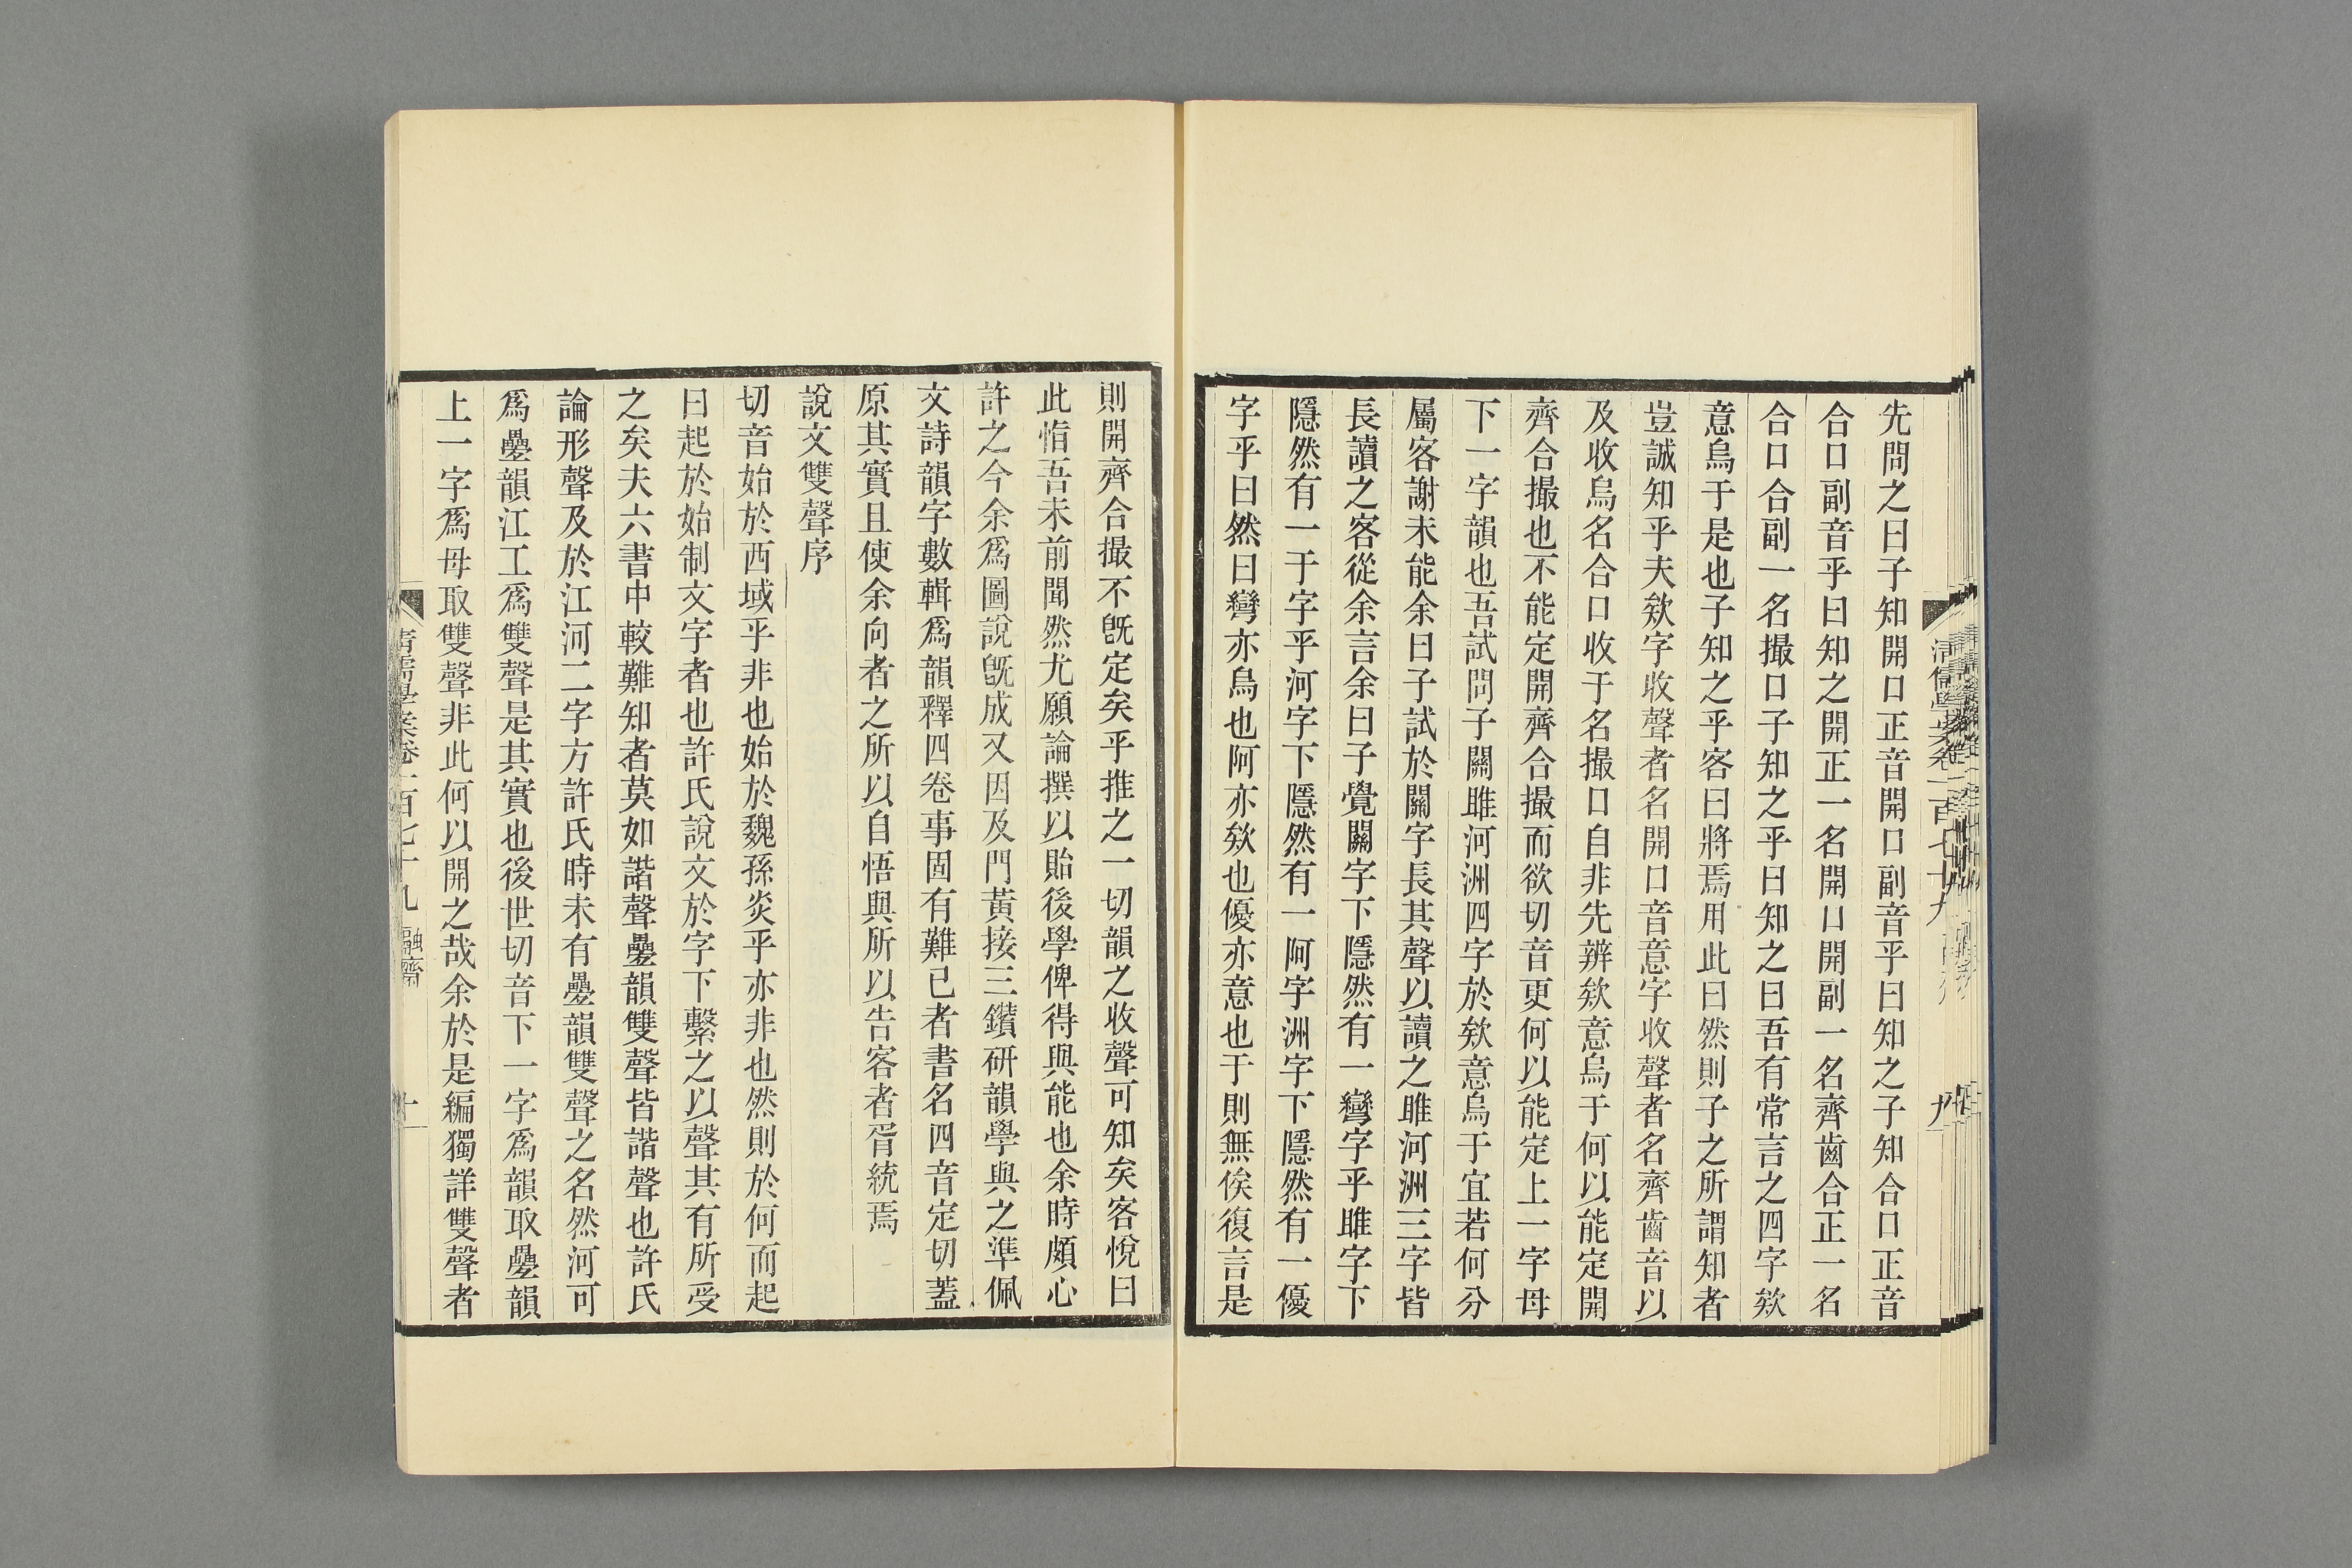 先問之曰子知開口正音開口副音乎曰知之子知合口正音
合口副音乎曰知之開正一名開口開副一名齊齒合正一名
合口合副一名撮口子知之乎曰知之曰吾有常言之四字欸
意烏于是也子知之乎客曰將焉用此曰然則子之所謂知者
豈誠知乎夫欸字收聲者名開口音意字收聲者名齊齒音以
及收烏名合口收于名撮口自非先辨欸意烏于何以能定開
齊合撮也不能定開齊合撮而欲切音更何以能定上一字母
下一字韻也吾試問子關雎河洲四字於欸意烏于宜若何分
屬客謝未能余曰子試於關字長其聲以讀之雎河洲三字皆
長讀之客從余言余曰子覺關字下隱然有一彎字乎雎字下
隱然有一于字乎河字下隱然有一阿字洲字下隱然有一優
字乎曰然曰彎亦烏也阿亦欸也優亦意也于則無俟復言是
清儒學案卷一百七十九
九
則開齊合撮不旣定矣乎推之一切韻之收聲可知矣客悅曰
此恉吾未前聞然尤願論撰以貽後學俾得與能也余時頗心
許之今余爲圖說旣成又因及門黃接三鑽研韻學與之準佩
文詩韻字數輯爲韻釋四卷事固有難已者書名四音定切蓋
原其實且使余向者之所以自悟與所以告客者胥統焉
說文雙聲序
切音始於西域乎非也始於魏孫炎乎亦非也然則於何而起
曰起於始制文字者也許氏說文於字下繫之以聲其有所受
之矣夫六書中較難知者莫如諧聲曡韻雙聲皆諧聲也許氏
論形聲及於江河二字方許氏時未有曡韻雙聲之名然河可
爲曡韻江工爲雙聲是其實也後世切音下一字爲韻取曡韻
上一字爲母取雙聲非此何以開之哉余於是編獨詳雙聲者
清儒學案卷一百七十九 融齋
十